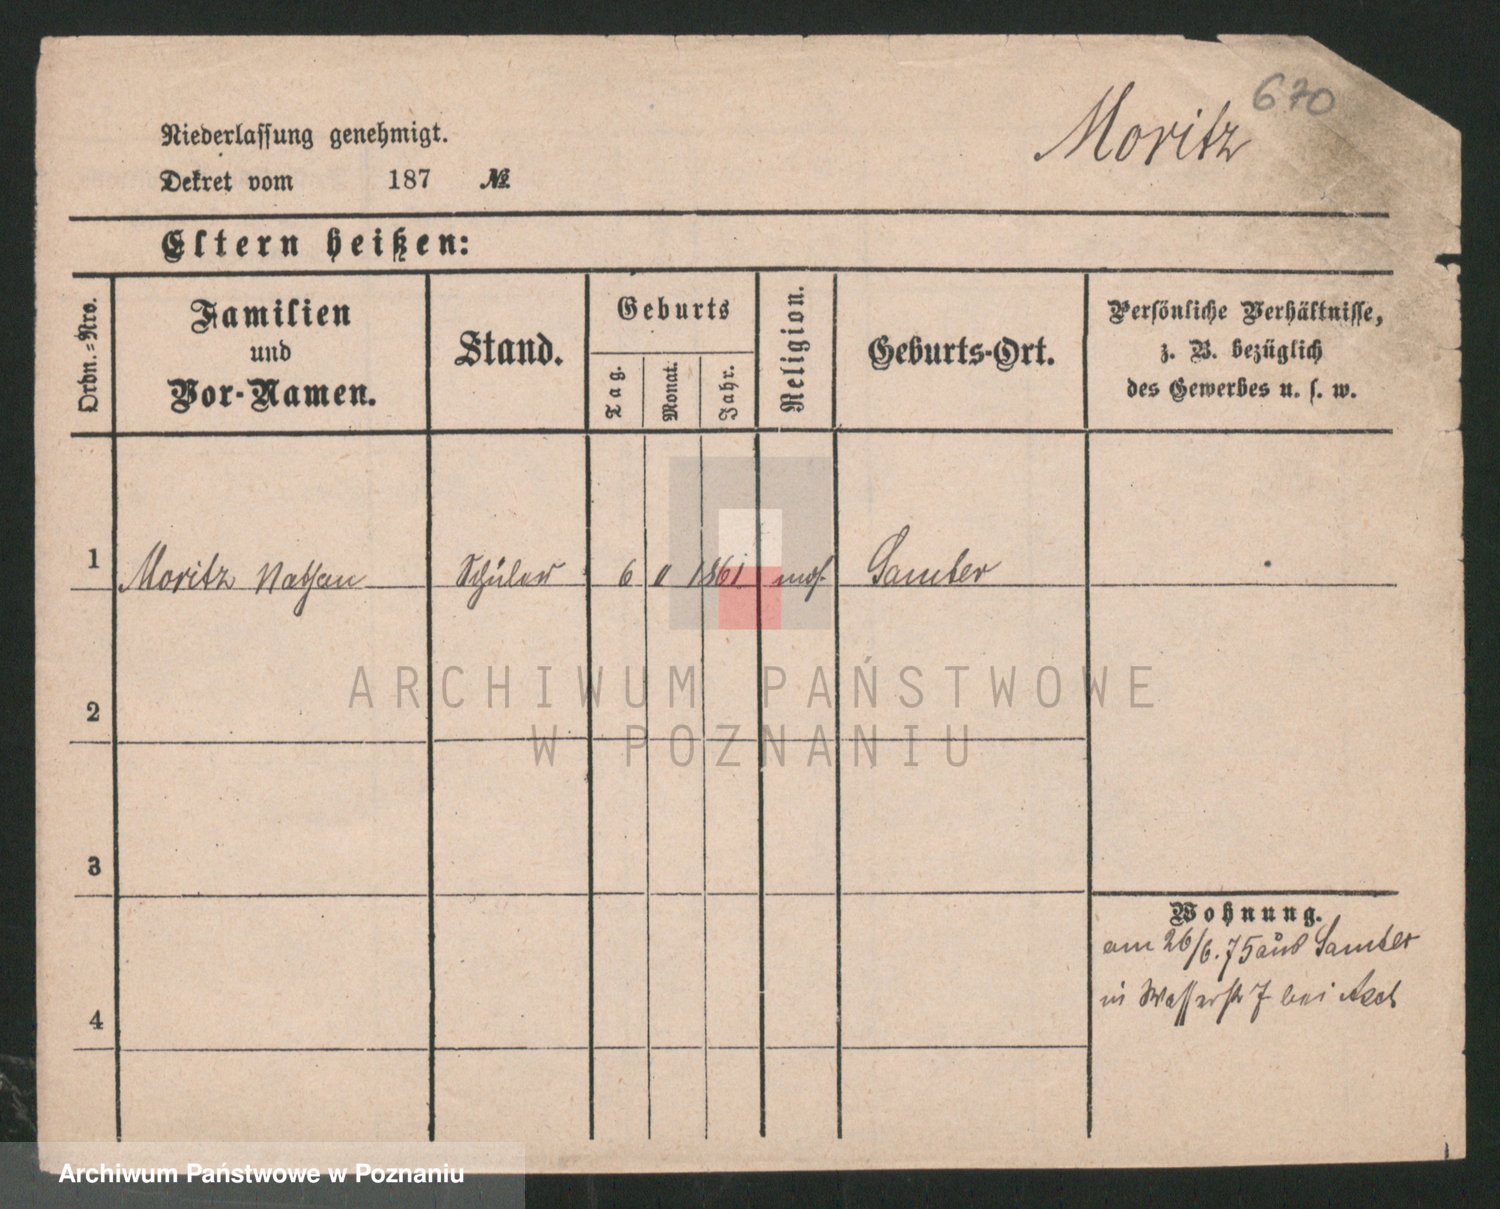 670
Moritz
Niederlassung genehmigt.
Dekret vom 187 №
Eltern heißen:
Ordn.=Nro.
Familien
und
Vor-Namen.
Stand.
Geburts
Tag.
Monat.
Jahr.
Religion.
Geburts-Ort.
Persönliche Verhältnisse,
z. B. bezüglich
des Gewerbes u. s. w.
1 Moritz Nathan Schüler 6 1861 mos. Samter
2
3
4
Wohnung.
am 26/6.75 aus Samter
in Wasserstr 7 bei
ARCHIWUM PAŃSTWOWE
W POZNANIU
Archiwum Państwowe w Poznaniu